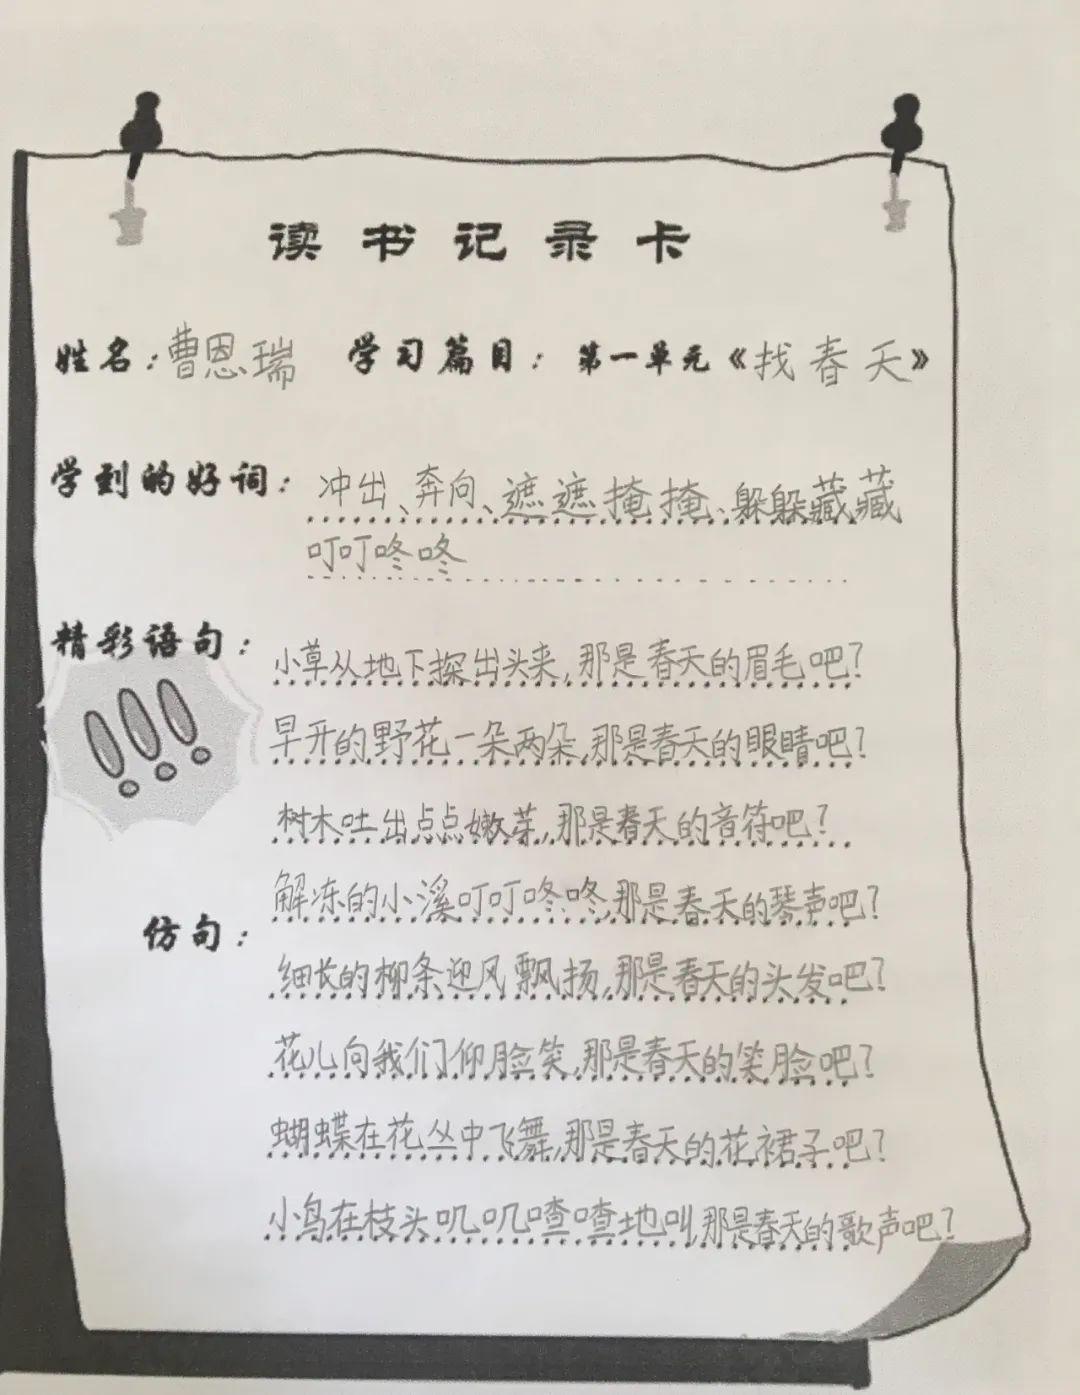 读书记录卡
姓名：曹恩瑞 学习篇目：第一单元《找春天》
学到的好词：冲出、奔向、遮遮掩掩、躲躲藏藏
叮叮咚咚
精彩语句：
小草从地下探出头来，那是春天的眉毛吧？
早开的野花一朵两朵，那是春天的眼睛吧？
树木吐出点点嫩芽，那是春天的音符吧？
解冻的小溪叮叮咚咚，那是春天的琴声吧？
仿句：
细长的柳条迎风飘扬，那是春天的头发吧？
花儿向我们仰脸笑，那是春天的笑脸吧？
蝴蝶在花丛中飞舞，那是春天的花裙子吧？
小鸟在枝头叽叽喳喳地叫，那是春天的歌声吧？